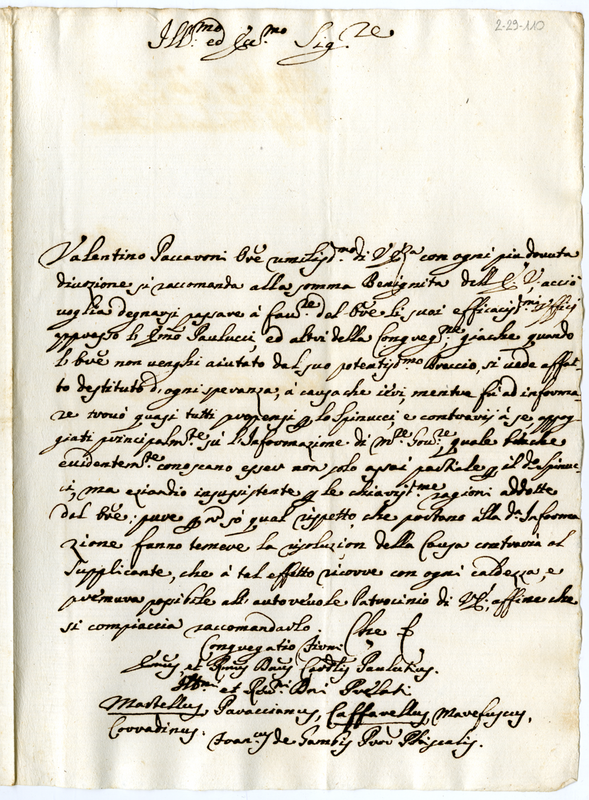 2-29-110
Ill.mo ed Ecc.mo Sig.re
Valentino Paccaroni Or̃e umiliss.mo di V.E.za con ogni più dovuta
divozione si racomanda alla somma Benignità dell' E. V. acciò
voglia degnarsi passare à fau.re dell' Or̃e li suoi efficacis.mi officij
appresso l'E.mo Paulucci, ed altri della Congreg.ne, giache quando
l'Or̃e non venghi aiutato dal suo potentiss.mo Braccio, si vede affat-
to destituto d'ogni speranza, à causa che ieri, mentre fù ad informa-
re trovò quasi tutti propensi p lo Spinucci, e contrarij à se appog-
giati principalm.te sù l'Informazione di M.re Gov.re, quale benche
evidentem.te conoscano esser non solo assai partiale p il d.o Spinuc-
ci, ma eziandio insussistente p le chiariss.me ragioni addotte
dal Or̃e: pure p non sò qual rispetto, che portano alla d.a Informa
zione fanno temere la risoluzion della Causa contraria al
supplicante, che à tal effetto ricorre con ogni caldezza, e
premura possibile all' autorevole Patrocinio di V.E., affine che
si compiaccia raccomandarlo. Che
Congregatio Firmi
Emus, et Rmus Dnus Cardlis Paulutius.
Illmi et Rmi Dni Prelati
Mastellus, Pavaccianus, Caffarellus, Marefuscus,
Corradinus.
Ioan.es de Zambis Proc. Phiscalis.